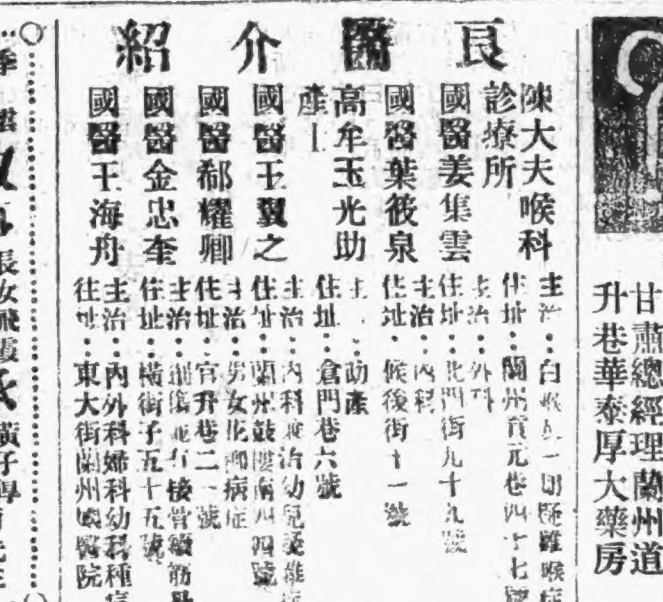 甘肅總經理蘭州道
升巷華泰厚大藥房
良醫介紹
陳大夫喉科
診療所
主治：白喉及一切疑難喉症
住址：蘭州貢元巷四十七號
國醫姜集雲
主治：外科
住址：北門街九十九號
國醫葉筱泉
主治：內科
住址：候後街十一號
高牟玉光助
產士
主：助產
住址：倉門巷六號
國醫王翼之
主治：內科兼治幼兒
住址：蘭州鼓樓南
國醫郗耀卿
主治：男女花柳病症
住址：官升巷二一號
國醫金忠奎
主治：接骨續筋
住址：橫街子五十五號
國醫王海舟
主治：內外科婦科幼科種痘
住址：東大街蘭州國醫院
張女飛霞